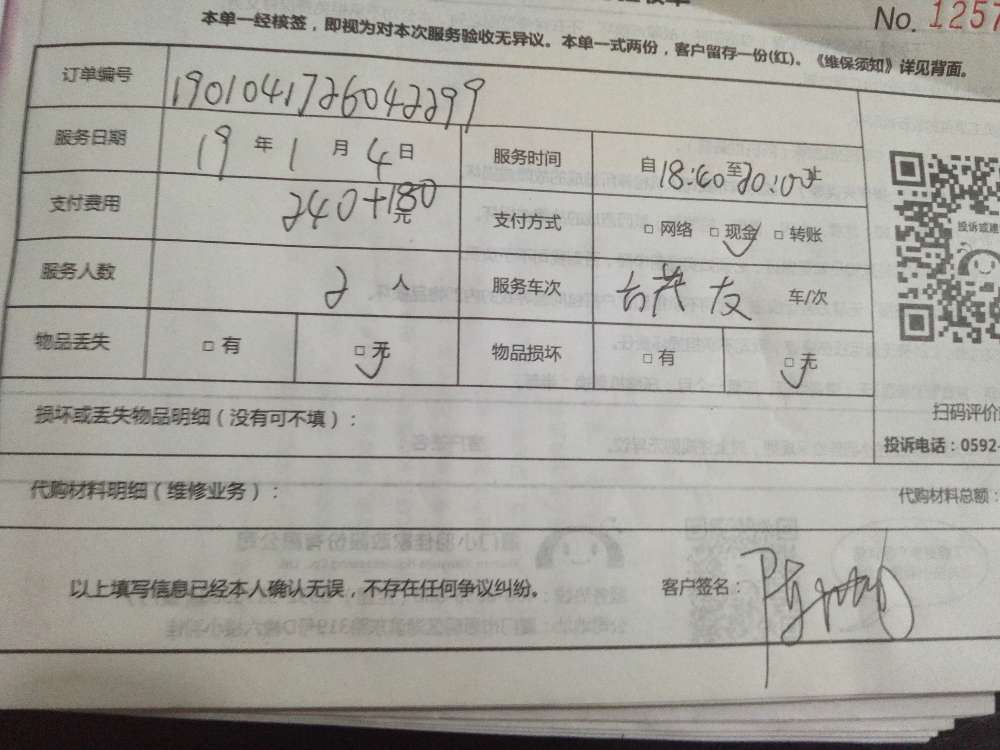 No. 1257
本单一经核签，即视为对本次服务验收无异议。本单一式两份，客户留存一份(红)。《维保须知》详见背面。
订单编号 1901041726042299
服务日期 19 年 1 月 4 日 服务时间 自18:40至20:00止
支付费用 240+180 元 支付方式 □ 网络 □ 现金 □ 转账
投诉或建
服务人数 2 人 服务车次 友 车/次
物品丢失 □ 有 □ 无 物品损坏 □ 有 □ 无
扫码评价
损坏或丢失物品明细（没有可不填）：
投诉电话：0592-
代购材料明细（维修业务）： 代购材料总额：
以上填写信息已经本人确认无误，不存在任何争议纠纷。 客户签名：